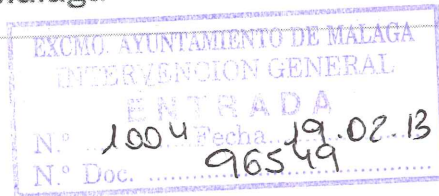 EXCMO. AYUNTAMIENTO DE MALAGA
INTERVENCION GENERAL
ENTRADA
N.º 1004 Fecha 19.02.13
N.º Doc. 96549